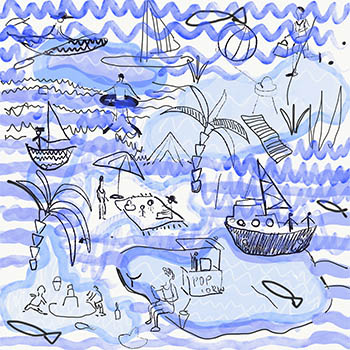 POP
CORN